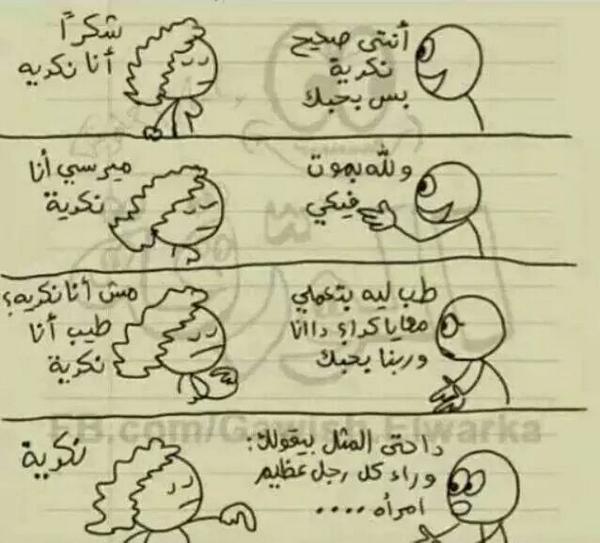 أنتى صحيح
نكرية
بس بحبك
شكرًا
أنا نكريه
والله بموت
فيكي
ميرسي أنا
نكرية
طب ليه بتعملي
معايا كدا؟ داانا
وربنا بحبك
مش أنا نكريه؟
طيب أنا
نكرية
داحتى المثل بيقولك:
وراء كل رجل عظيم
امرأه ....
نكرية
FB.com/Gawish.Elwarka